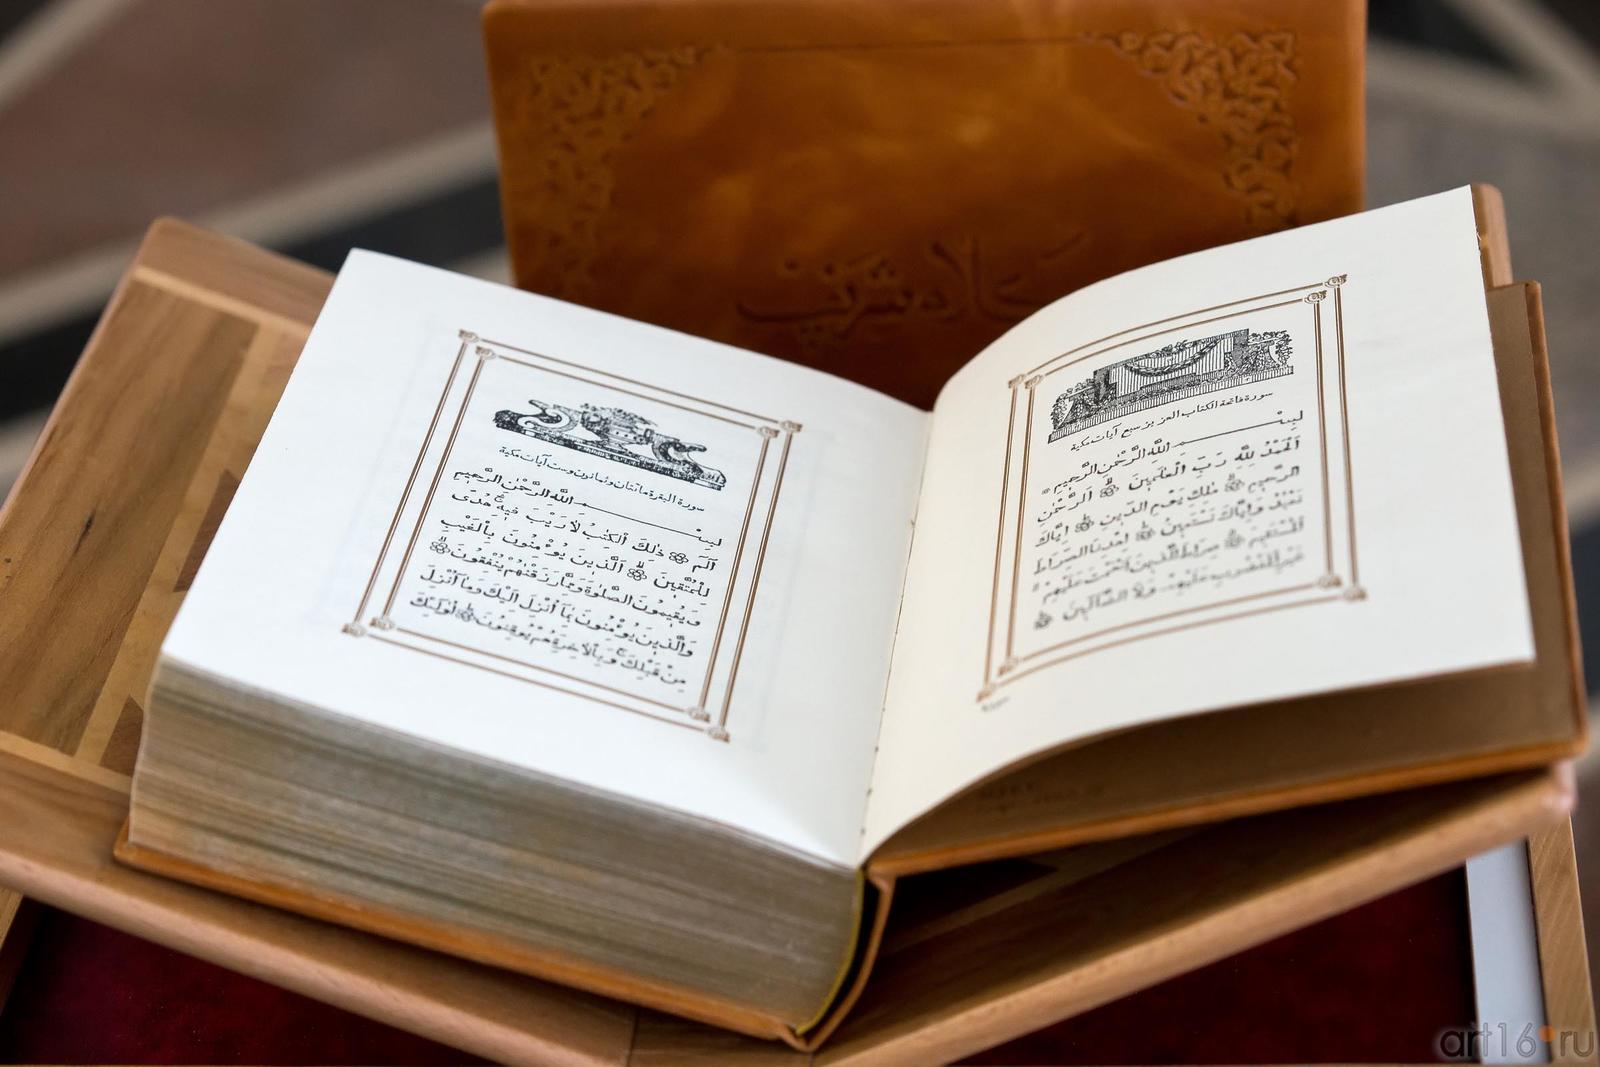 كلام شريف
سورة فاتحة الكتاب العزيز سبع آيات مكية
بِسْمِ اللّٰهِ الرَّحْمٰنِ الرَّحِيمِ
اَلْحَمْدُ لِلّٰهِ رَبِّ الْعٰلَمِينَ ۞ اَلرَّحْمٰنِ
الرَّحِيمِ ۞ مٰلِكِ يَوْمِ الدِّينِ ۞ اِيَّاكَ
نَعْبُدُ وَاِيَّاكَ نَسْتَعِينُ ۞ اِهْدِنَا الصِّرَاطَ
الْمُسْتَقِيمَ ۞ صِرَاطَ الَّذِينَ اَنْعَمْتَ عَلَيْهِمْ
غَيْرِ الْمَغْضُوبِ عَلَيْهِمْ وَلَا الضَّالِّينَ ۞
سورة البقرة مائتان وثمانون وست آيات مكية
بِسْمِ اللّٰهِ الرَّحْمٰنِ الرَّحِيمِ
الٓمٓ ۞ ذٰلِكَ الْكِتٰبُ لَا رَيْبَ فِيهِ هُدًى
لِلْمُتَّقِينَ ۞ اَلَّذِينَ يُؤْمِنُونَ بِالْغَيْبِ
وَيُقِيمُونَ الصَّلٰوةَ وَمِمَّا رَزَقْنٰهُمْ يُنْفِقُونَ ۞
وَالَّذِينَ يُؤْمِنُونَ بِمَا اُنْزِلَ اِلَيْكَ وَمَا اُنْزِلَ
مِنْ قَبْلِكَ وَبِالْاٰخِرَةِ هُمْ يُوقِنُونَ ۞ اُولٰئِكَ
art16.ru